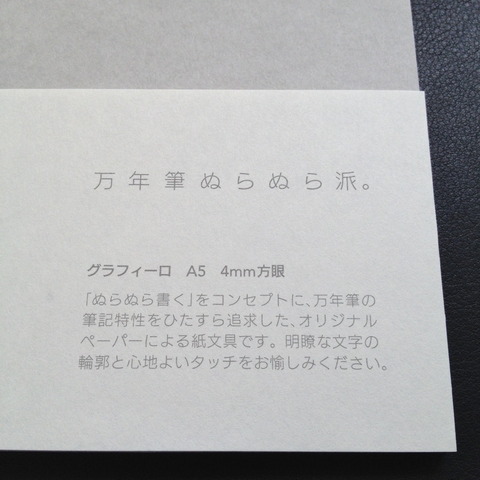 万年筆ぬらぬら派。
グラフィーロ A5 4mm方眼
「ぬらぬら書く」をコンセプトに、万年筆の
筆記特性をひたすら追求した、オリジナル
ペーパーによる紙文具です。明瞭な文字の
輪郭と心地よいタッチをお愉しみください。